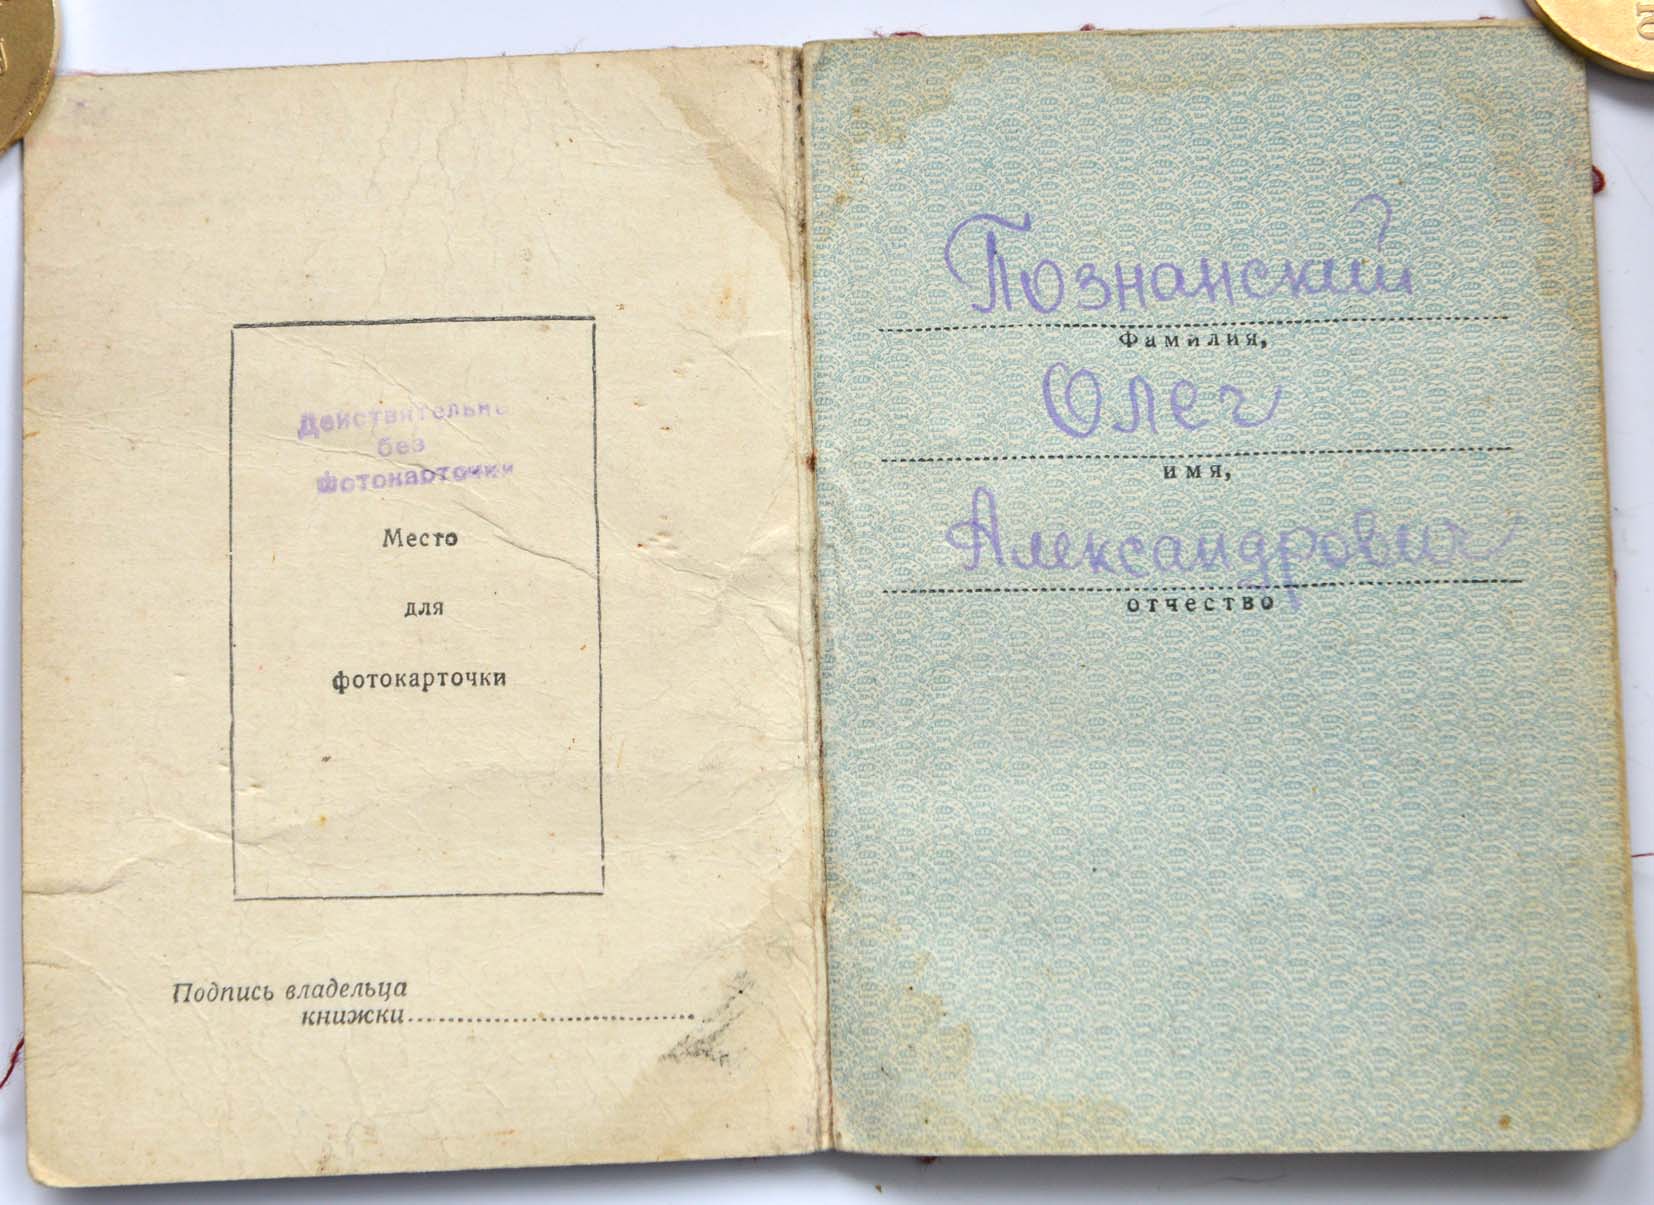 Действительно
без
фотокарточки
Место
для
фотокарточки
Подпись владельца
книжки
Познанский
Фамилия,
Олег
имя,
Александрович
отчество